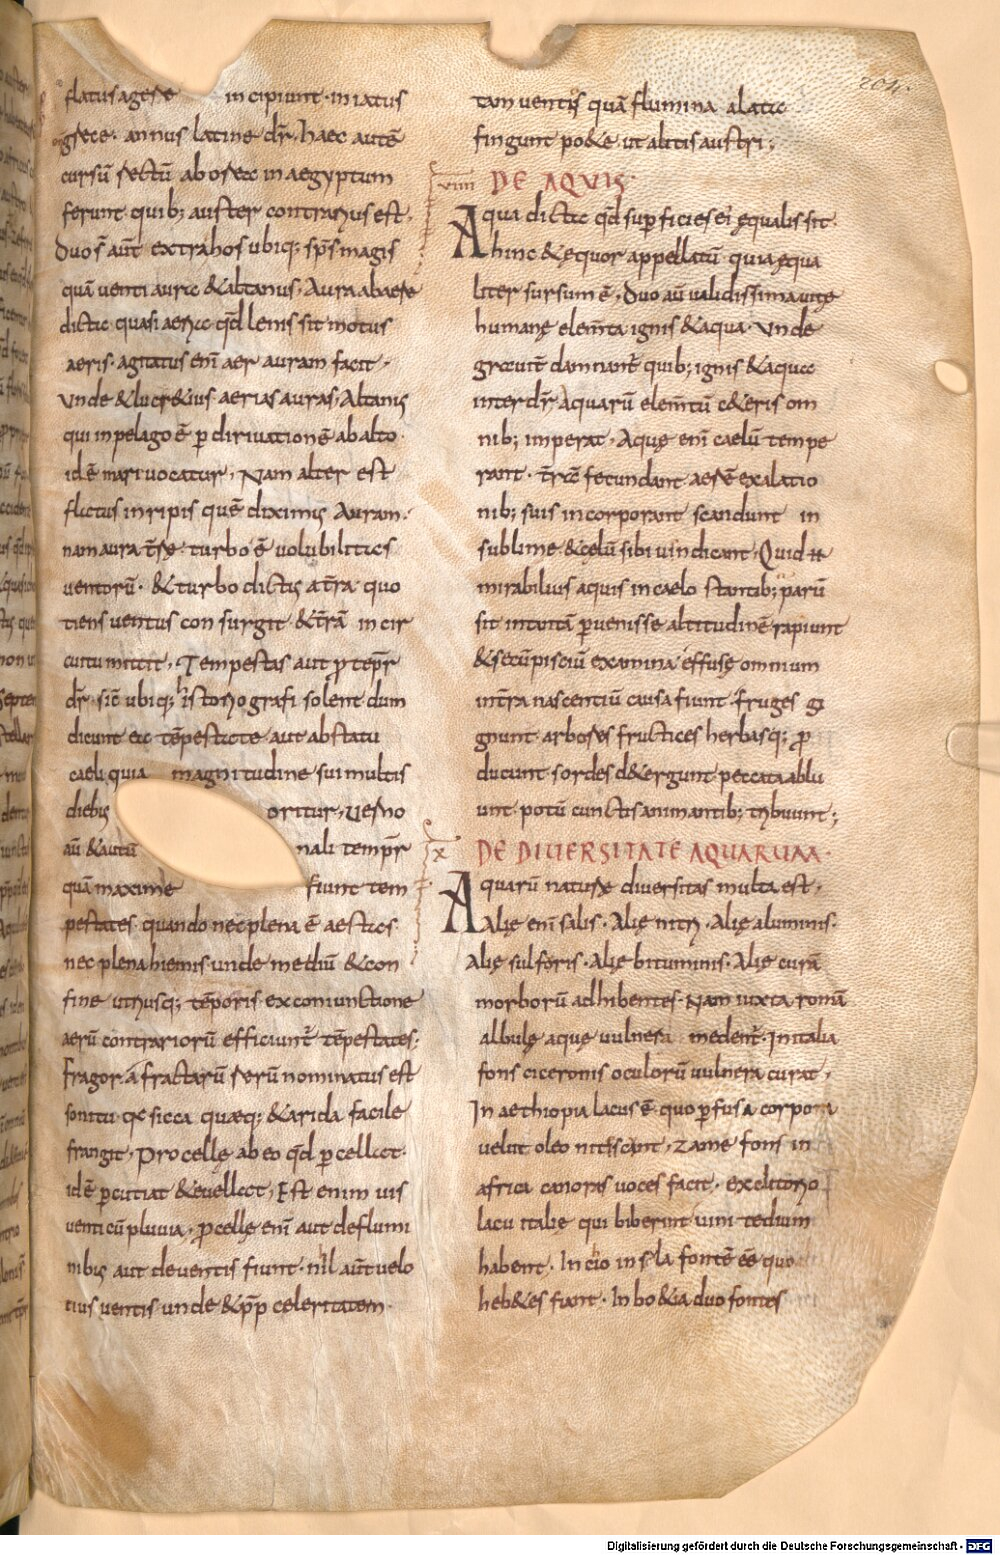 204.
flatus agere incipiunt · in iatus
grece · annus latine dr̄ · haec autē
cursū rectū a borea in aegyptum
ferunt quib; auster contrarius est ·
Duos aut̄ extra hos ubiq; sp̄s magis
quā venti aura & altanus · Aura ab aere
dicta quasi aeria qd̄ lenis sit motus
aeris · agitatus enī aer auram facit ·
unde & lucr&ius aerias auras · Altanus
qui in pelago ē p dirivationē ab alto ·
idē mari vocatur · Nam alter est
fluctus in ripis quē diximus Auram ·
nam aura t̄re · turbo ē volubilitas
ventorū · & turbo dictus a t̄ra · quo
tiens ventus consurgit · & t̄rā in cir
cuitu mittit · Tempestas aut p tēpr̄
dr̄ · sic̄ ubiq; historiografi solent dum
dicunt ea tēpestate aut ab statu
caeli quia magnitudine sui multis
diebus oritur · Uerno
aū & autū nali tempr̄
quā maxime fiunt tem
pestates · quando nec plena ē aestas ·
nec plena hiemis · unde mediū & con
fine utriusq; tēporis ex coniunctione
aerū contrariorū efficiunt̄ tēpestates ;
Fragor a fractarū rerū nominatus est
sonitu qa sicca quaeq; & arida facile
frangit · Procellę ab eo qd̄ p cellat ·
idē pcutiat & evellat · Est enim vis
venti cū pluvia · pcellę enī aut deflumi
nibus aut de ventis fiunt · nihil aut̄ velo
cius ventis unde & pp̄ celeritatem ·
tam ventis quā flumina alata
fingunt po&e ut alitis austri ;
viiii DE AQUIS ·
Aqua dicta qd̄ superficies ei ęqualis sit ·
Ahinc & ęquor appellatū quia ęqua
liter sursum ē · Duo aū validissima vitę
humanę elem̄ta ignis & aqua · Unde
gravit̄ damnant̄ quib; ignis & aqua
interdr̄ Aquarū elem̄tū c&eris om
nib; imperat · Aquę enī caelū tempe
rant · t̄ra fecundant aerē exalatio
nib; suis incorporant scandunt in
sublime & cęlū sibi vindicant · Quid ·n·
mirabilius aquis in caelo stantib; parū
sit in tantā pvenisse altitudinē rapiunt
& secū pisciū examina effusę omnium
in t̄ra nascentiū causa fiunt · fruges gi
gnunt arbores fructices herbasq; p
ducunt sordes d&ergunt peccata ablu
unt · potū cunctis animantib; tribuunt ;
x DE DIVERSITATE AQUARUM ·
Aquarū natura diversitas multa est ·
Aalię enī salis · Alię nitri · Alię aluminis ·
Alię sulforis · Alię bituminis · Alię curā
morborū adhibentes · Nam iuxta romā
albulę aquę vulnera medent̄ · In italia
fons ciceronis oculorū vulnera curat ·
In aethiopia lacus ē · quo pfusa corpora
velut oleo nitescant · zamę fons in
africa canoras voces facit · ex clitorio
lacu italię qui biberint vini tedium
habent · In cio insula fontē ēē quo
heb&es fiant · In bo&ia duo fontes
Digitalisierung gefördert durch die Deutsche Forschungsgemeinschaft - DFG